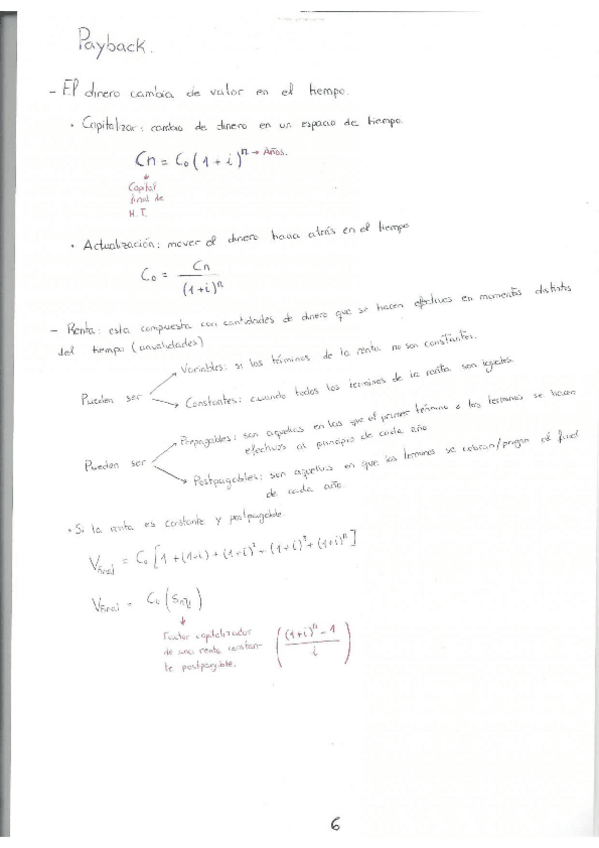 Payback.
- El dinero cambia de valor en el tiempo.
• Capitalizar: cambio de dinero en un espacio de tiempo.
Cn = C₀ (1 + i)ⁿ → Años.
↓
Capital
final de
H.T.
• Actualización: mover el dinero hacia atrás en el tiempo
C₀ = Cn / (1+i)ⁿ
- Renta: esta compuesta con cantidades de dinero que se hacen efectivas en momentos distintos
del tiempo (anualidades)
Variables: si los términos de la renta no son constantes.
Pueden ser
Constantes: cuando todos los términos de la renta son iguales.
Prepagables: son aquellas en las que el primer término o los terminos se hacen
efectivos al principio de cada año
Pueden ser
Postpagables: son aquellas en que los términos se cobran/pagan al final
de cada año.
• Si la renta es constante y postpagable.
Vfinal = C₀ [1 + (1+i) + (1+i)² + (1+i)³ + (1+i)ⁿ]
Vfinal = C₀ (Sn¬i)
↓
Factor capitalizador
de una renta constan-
te postpagable.
( (1+i)ⁿ - 1 / i )
6